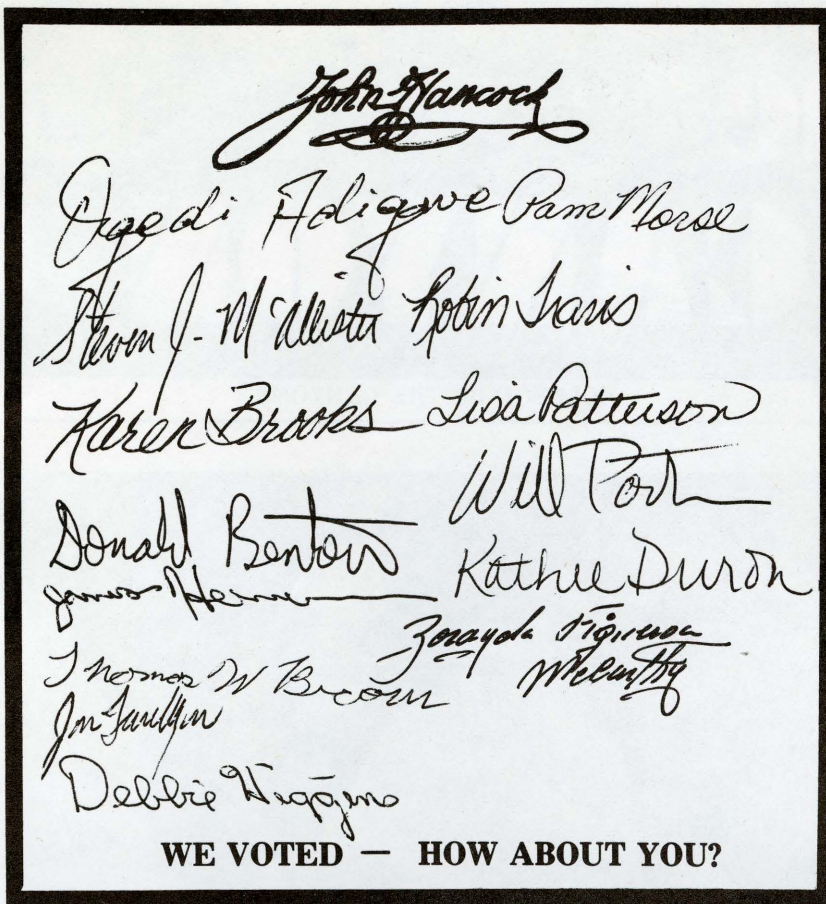 John Hancock
Adigwe Pam Morse
Steven J. McAllister Robin Travis
Karen Brooks Lisa Patterson
Will
Donald Benton
Kathie Duron
James
Zorayda Figueroa
Thomas W
McCarthy
Debbie Higgins
WE VOTED — HOW ABOUT YOU?